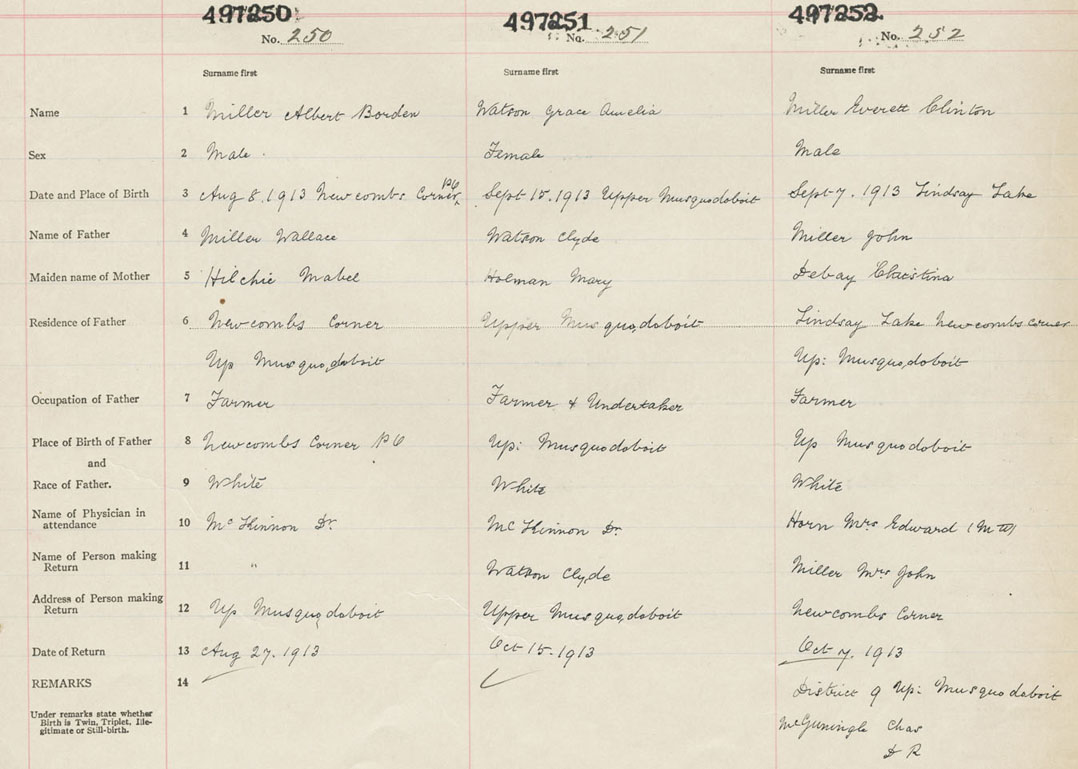 497250 497251 497252
No. 250 No. 251 No. 252
Surname first Surname first Surname first
Name 1 Miller Albert Borden Watson Grace Amelia Miller Everett Clinton
Sex 2 Male Female Male
Date and Place of Birth 3 Aug 8. 1913 Newcombs Corner, P6 Sept 15. 1913 Upper Musquodoboit Sept 7. 1913 Lindsay Lake
Name of Father 4 Miller Wallace Watson Clyde Miller John
Maiden name of Mother 5 Hilchie Mabel Holman Mary Debay Christina
Residence of Father 6 Newcombs Corner Upper Musquodoboit Lindsay Lake Newcombs corner
Up Musquodoboit Up: Musquodoboit
Occupation of Father 7 Farmer Farmer & Undertaker Farmer
Place of Birth of Father 8 Newcombs Corner P6 Up: Musquodoboit Up Musquodoboit
and
Race of Father. 9 White White White
Name of Physician in
attendance 10 McKinnon Dr. McKinnon Dr. Horn Mrs Edward (M W)
Name of Person making
Return 11 " Watson Clyde Miller Mrs John
Address of Person making
Return 12 Up Musquodoboit Upper Musquodoboit Newcombs Corner
Date of Return 13 Aug 27. 1913 Oct 15. 1913 Oct 7. 1913
REMARKS 14
District 9 Up: Musquodoboit
Under remarks state whether
Birth is Twin, Triplet, Ille-
gitimate or Still-birth.
Chas
D R